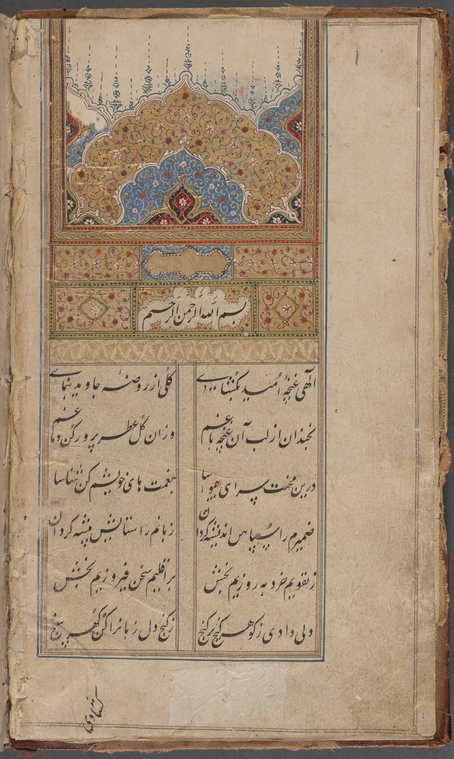 بسم الله الرحمن الرحیم
الهی غنچهٔ امید بکشای کلی از روضهٔ جاوید بنمای
بخندان از لب آن غنچه باغم وزان کل عطر پرور کن دماغم
درین محنت سرای بی مواسا بنعمت های خویشم کن شناسا
ضمیرم را سپاس اندیشه کردان زبانم را ستایش پیشه کردان
ز تقویم خرد بهروزیم بخش بر اقلیم سخن فیروزیم بخش
دلی دادی ز کوهر کنج بر کنج ز کنج دل زبانرا کن کهر سنج
کشادی